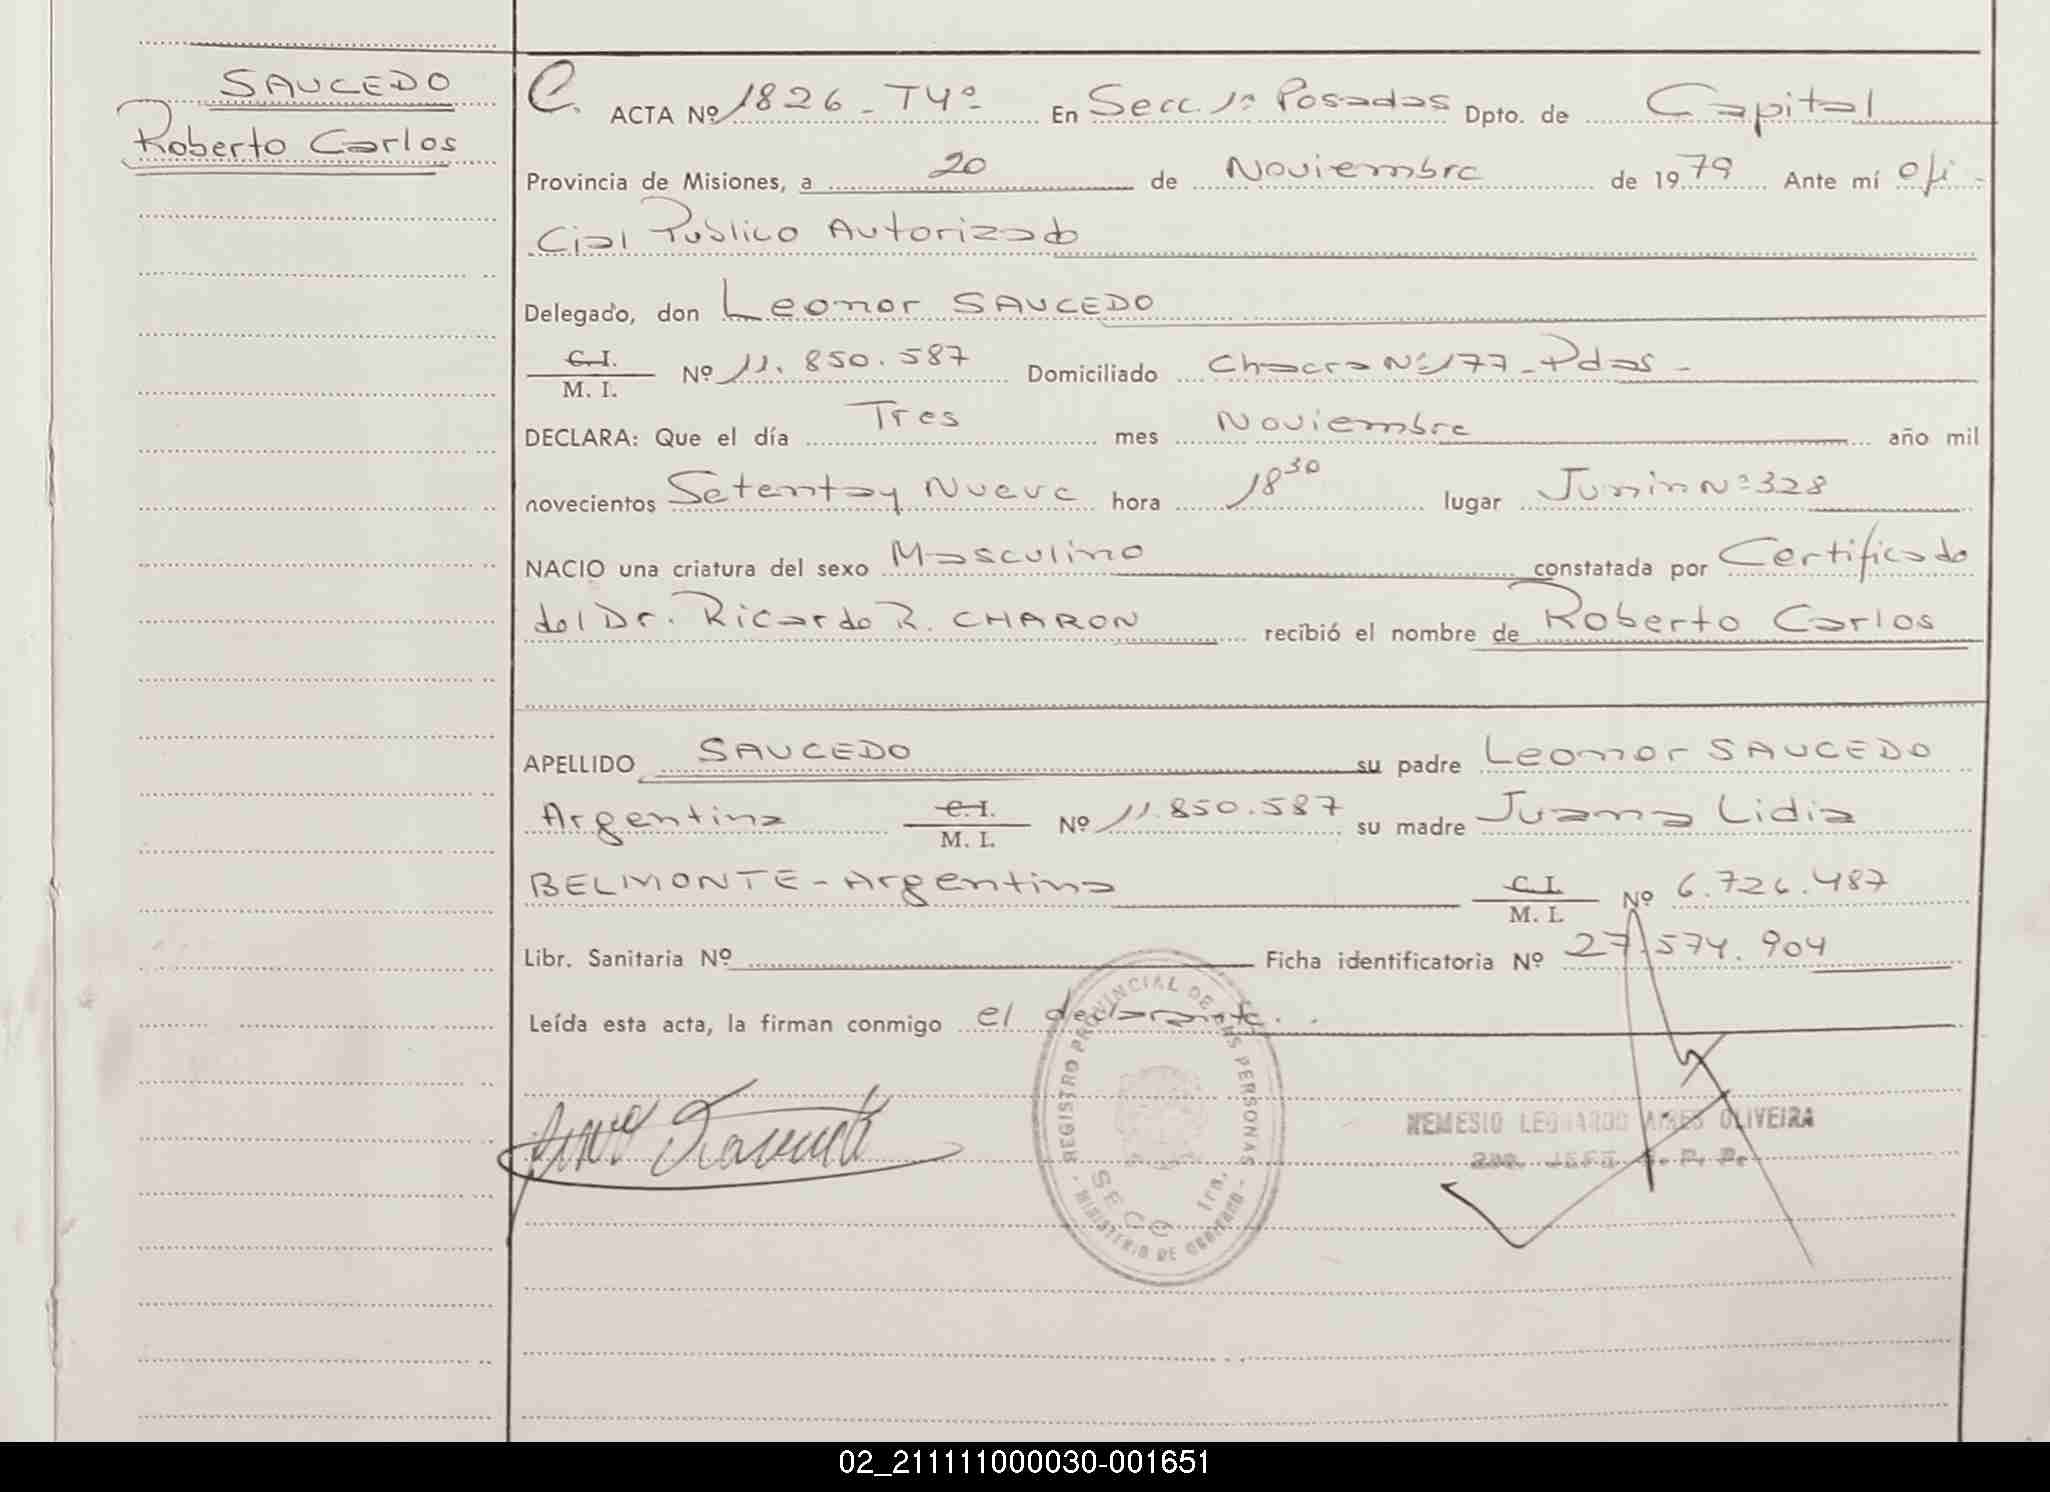 SAUCEDO
Roberto Carlos
C. ACTA Nº 1826 - T4º En Secc. 1ª Posadas Dpto. de Capital
Provincia de Misiones, a 20 de Noviembre de 1979 Ante mí Ofi-
cial Publico Autorizado
Delegado, don Leonor SAUCEDO
C.I. / M. I. Nº 11.850.587 Domiciliado Chacra Nº 177 - Pdas -
DECLARA: Que el día Tres mes Noviembre año mil
novecientos Setenta y Nueve hora 18 30 lugar Junin Nº 328
NACIO una criatura del sexo Masculino constatada por Certificado
del Dr. Ricardo R. CHARON recibió el nombre de Roberto Carlos
APELLIDO SAUCEDO su padre Leonor SAUCEDO
Argentina C.I. / M. I. Nº 11.850.587 su madre Juana Lidia
BELMONTE - Argentina C.I. / M. I. Nº 6.726.487
Libr. Sanitaria Nº Ficha identificatoria Nº 27.574.904
Leída esta acta, la firman conmigo el declarante. .
REGISTRO PROVINCIAL DE LAS PERSONAS
SECC. 1ra.
- MINISTERIO DE GOBIERNO -
NEMESIO LEONARDO AIRES OLIVEIRA
JEFE R. P. P.
02_211111000030-001651